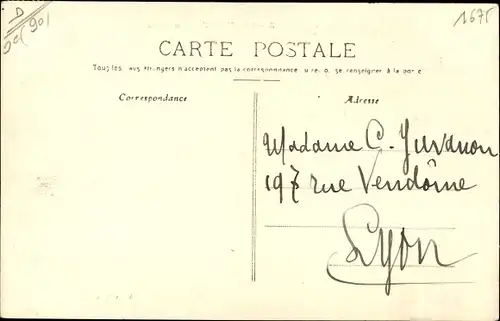 D
1675
CARTE POSTALE
Tous les pays étrangers n'acceptent pas la correspondance au recto, se renseigner à la poste
Correspondance
Adresse
Madame C.
197 rue Vendôme
Lyon